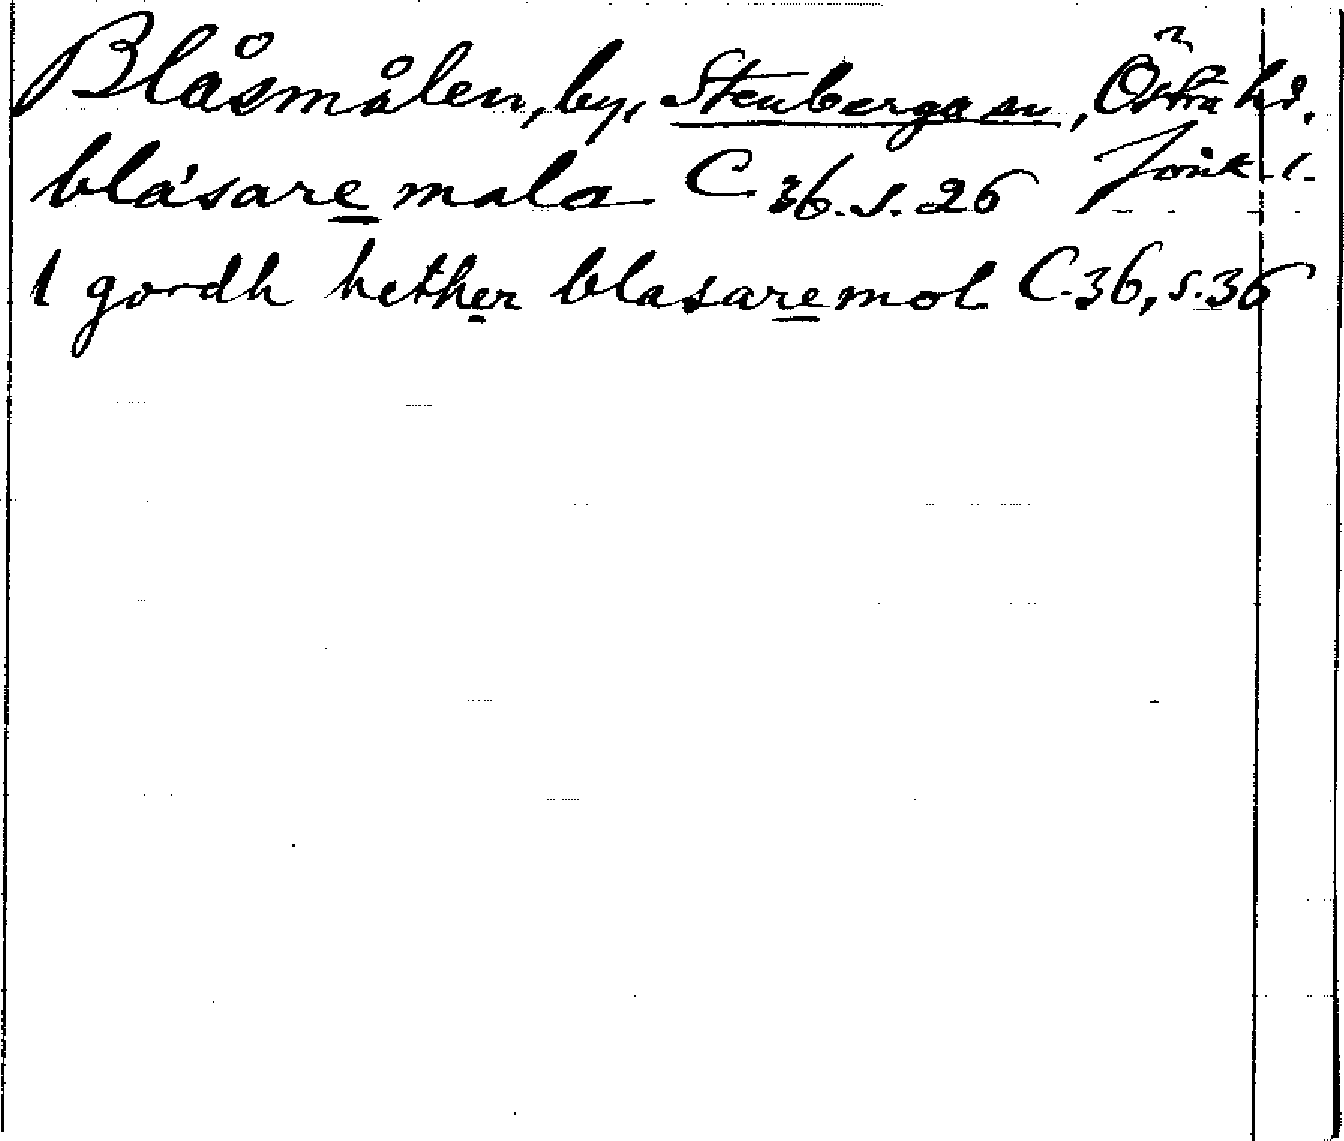 Blåsmålen, by, Stenberga sn, Östra hd.
Jönk. l.
blásare mala C 36. s. 26
1 gordh hether blasaremol C.36, s.36